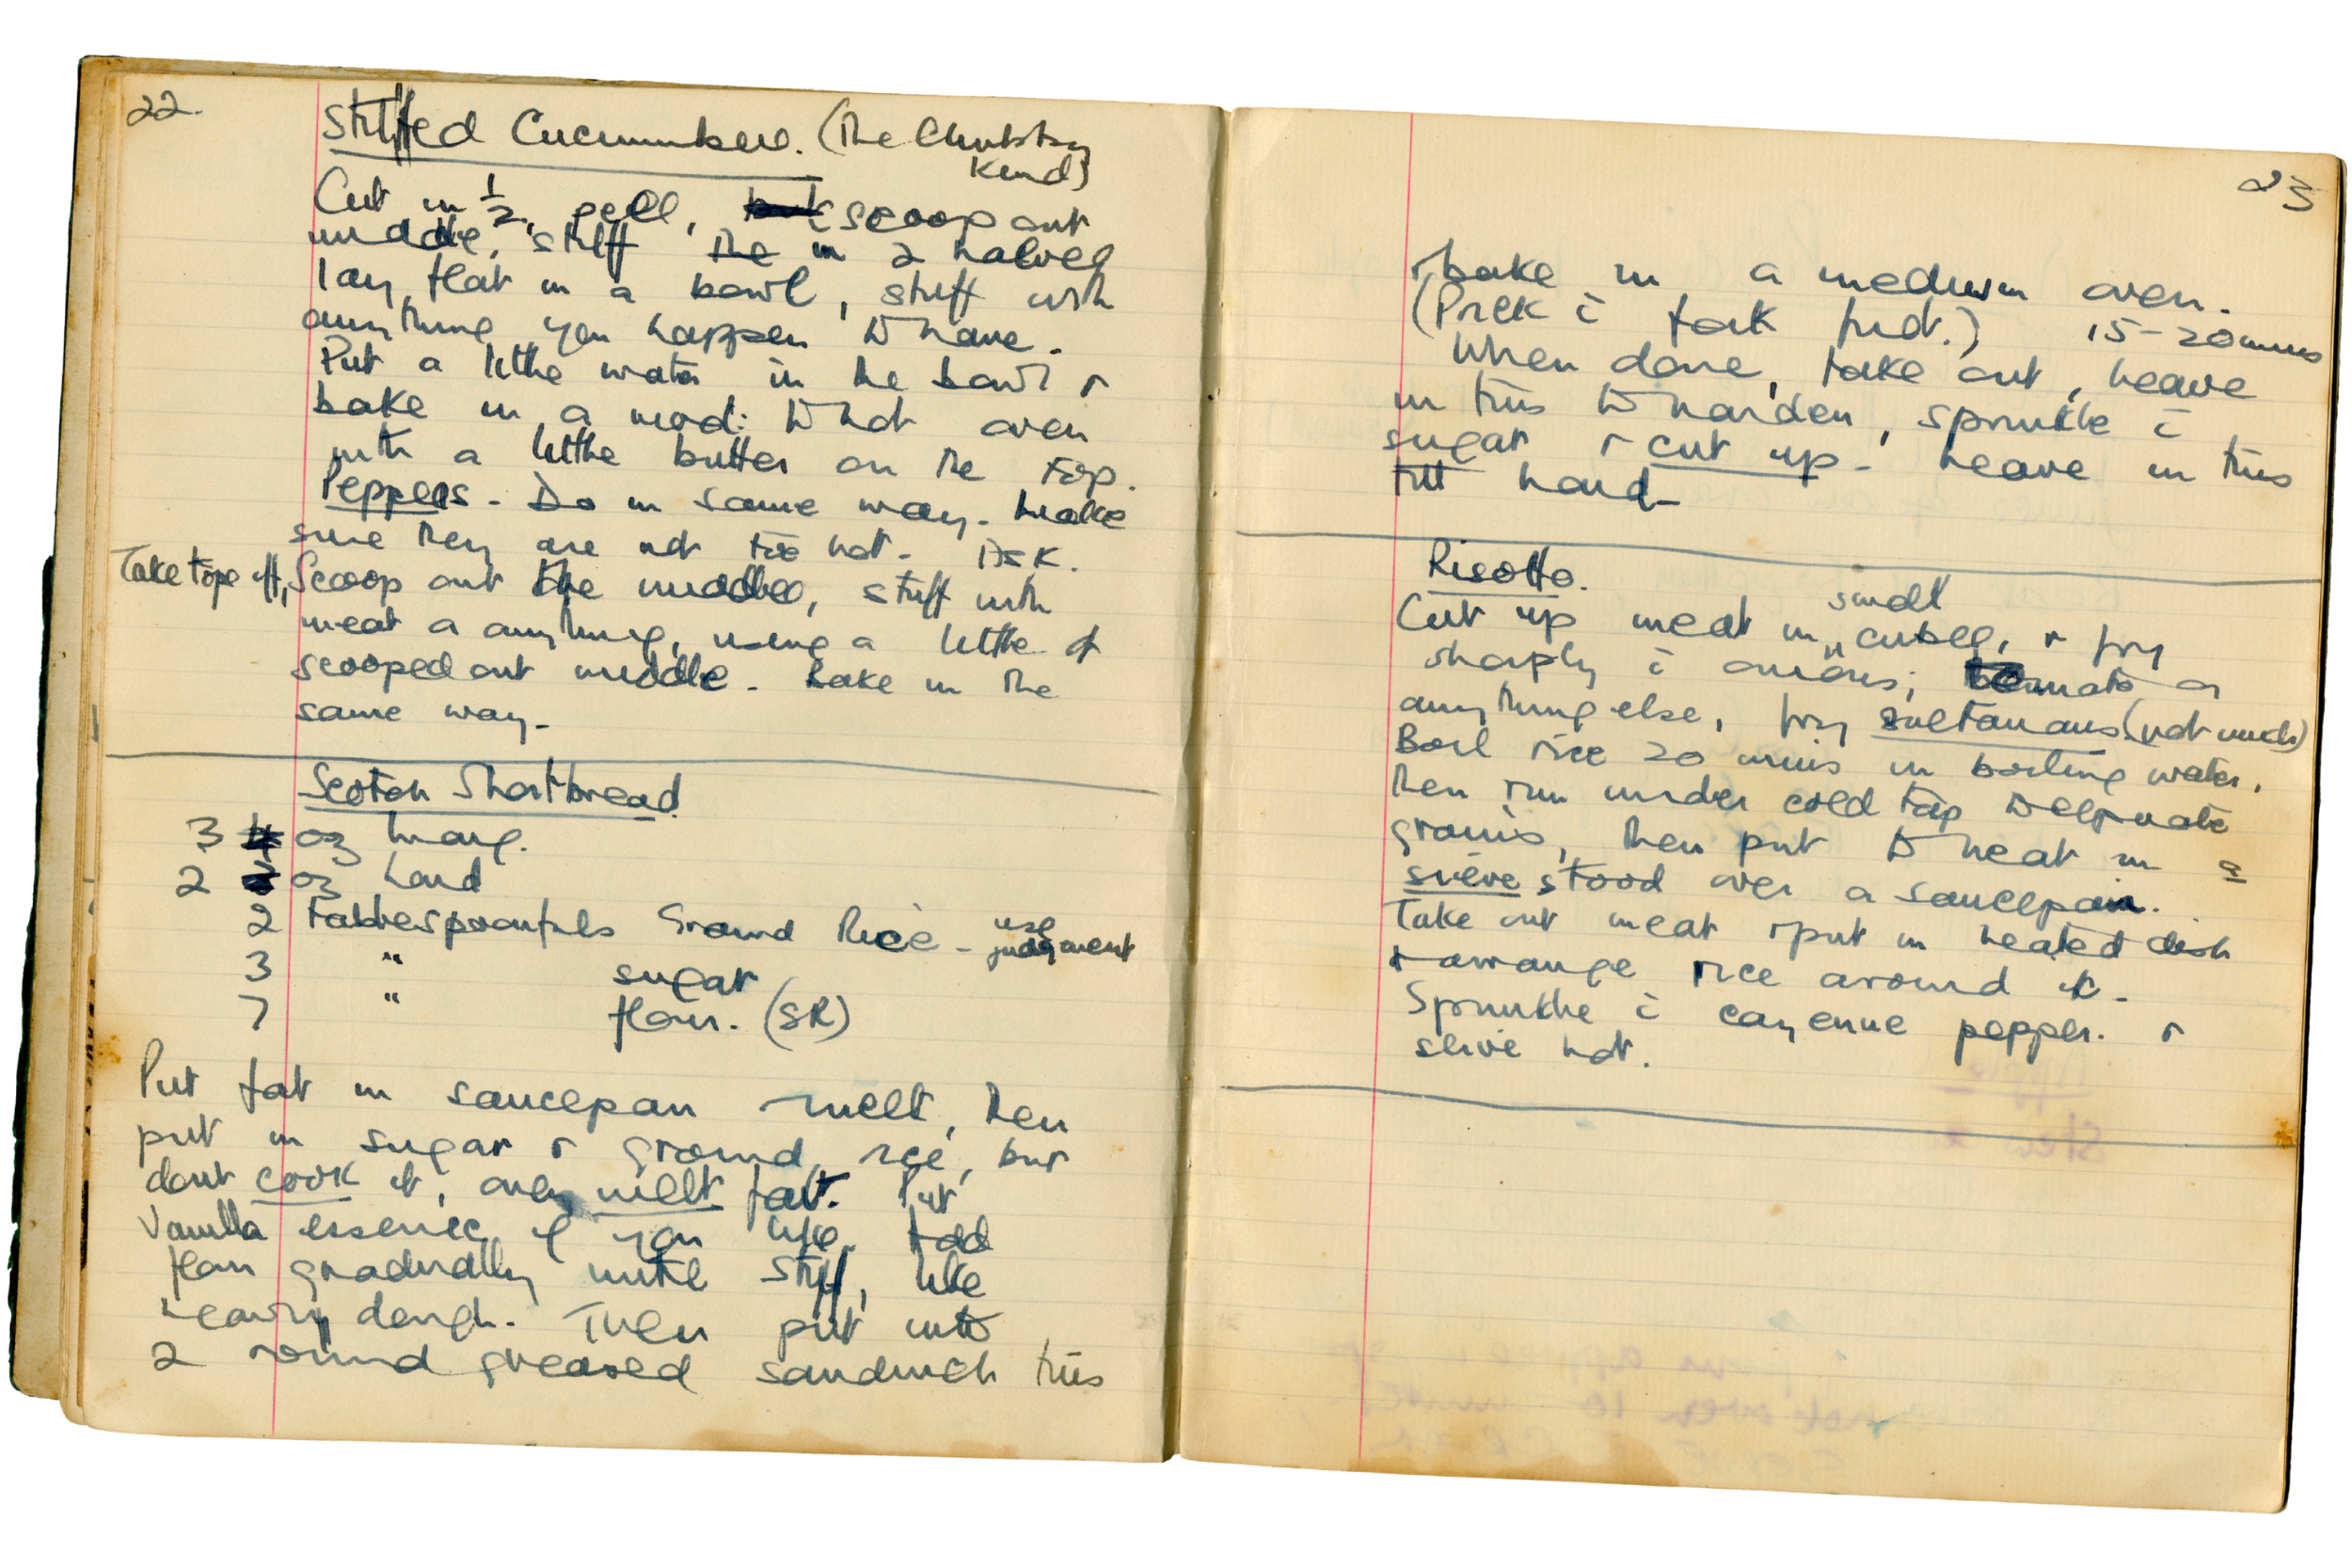 22.
Stuffed Cucumbers. (The Chubby
Kind)
Cut in ½, peel, but scoop out
middle, stuff the in 2 halves
lay flat in a bowl, stuff with
anything you happen to have.
Put a little water in the bowl &
bake in a mod: to hot oven
with a little butter on the top.
Peppers - Do in same way. Make
sure they are not too hot. Ask.
Take tops off, Scoop out the middles, stuff with
meat or anything, using a little of
scooped out middle. Bake in the
same way.
Scotch Shortbread
3 4 oz Marg.
2 3 oz Lard
2 Tablespoonfuls Ground Rice - use judgment
3 " sugar
7 " flour. (SR)
Put fat in saucepan & melt, then
put in sugar & ground rice, but
dont cook it, only melt fat. Put
Vanilla essence if you like. Add
flour gradually until stiff, like
heavy dough. Then put into
2 round greased sandwich tins
23
& bake in a medium oven.
(Prick c̄ fork first.) 15-20 mins
When done, take out, leave
in tins to harden, sprinkle c̄
sugar & cut up - leave in tins
till hard.
Risotto.
Cut up meat in small cubes, & fry
sharply c̄ onions; tomato or
anything else, fry sultanans (not much)
Boil rice 20 mins in boiling water,
then run under cold tap to separate
grains, then put to heat in a
sieve stood over a saucepan.
Take out meat & put in heated dish
& arrange rice around it.
Sprinkle c̄ cayenne pepper. &
serve hot.